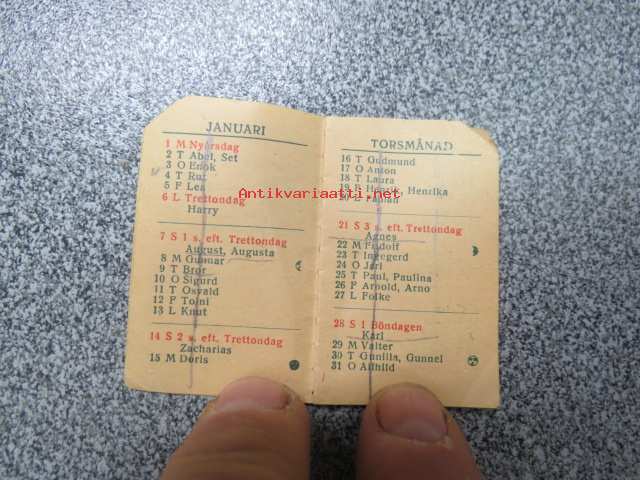 JANUARI
1 M Nyårsdag
2 T Abel, Set
3 O Enok
4 T Rut
5 F Lea
6 L Trettondag
Harry
7 S 1 s. eft. Trettondag
August, Augusta
8 M Gunnar
9 T Bror
10 O Sigurd
11 T Osvald
12 F Toini
13 L Knut
14 S 2 s. eft. Trettondag
Zacharias
15 M Doris
TORSMÅNAD
16 T Gudmund
17 O Anton
18 T Laura
19 F Henrik, Henrika
20 L Fabian
21 S 3 s. eft. Trettondag
Agnes
22 M Fridolf
23 T Ingegerd
24 O Jarl
25 T Paul, Paulina
26 F Arnold, Arno
27 L Folke
28 S 1 Böndagen
Karl
29 M Valter
30 T Gunilla, Gunnel
31 O Alfhild
Antikvariaatti.net